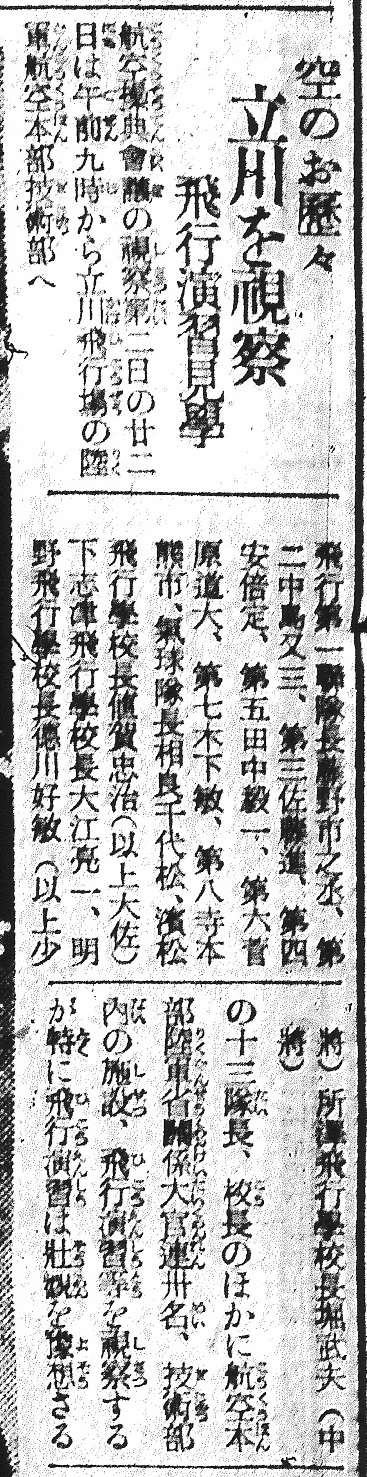 空のお歷々
立川を視察
飛行演習見學
航空操典會議の視察第二日の廿二
日は午前九時から立川飛行場の陸
軍航空本部技術部へ
飛行第一聯隊長藤野市之丞、第
二中島又三、第三佐藤進、第四
安倍定、第五田中毅一、第六菅
原道大、第七木下敏、第八寺本
熊市、氣球隊長相良千代松、濱松
飛行學校長値賀忠治(以上大佐)
下志津飛行學校長大江亮一、明
野飛行學校長德川好敏(以上少
將)所澤飛行學校長堀武夫(中
將)
の十三隊長、校長のほかに航空本
部陸軍省關係大官連卅名、技術部
內の施設、飛行演習等を視察する
が特に飛行演習は壯觀を豫想さる